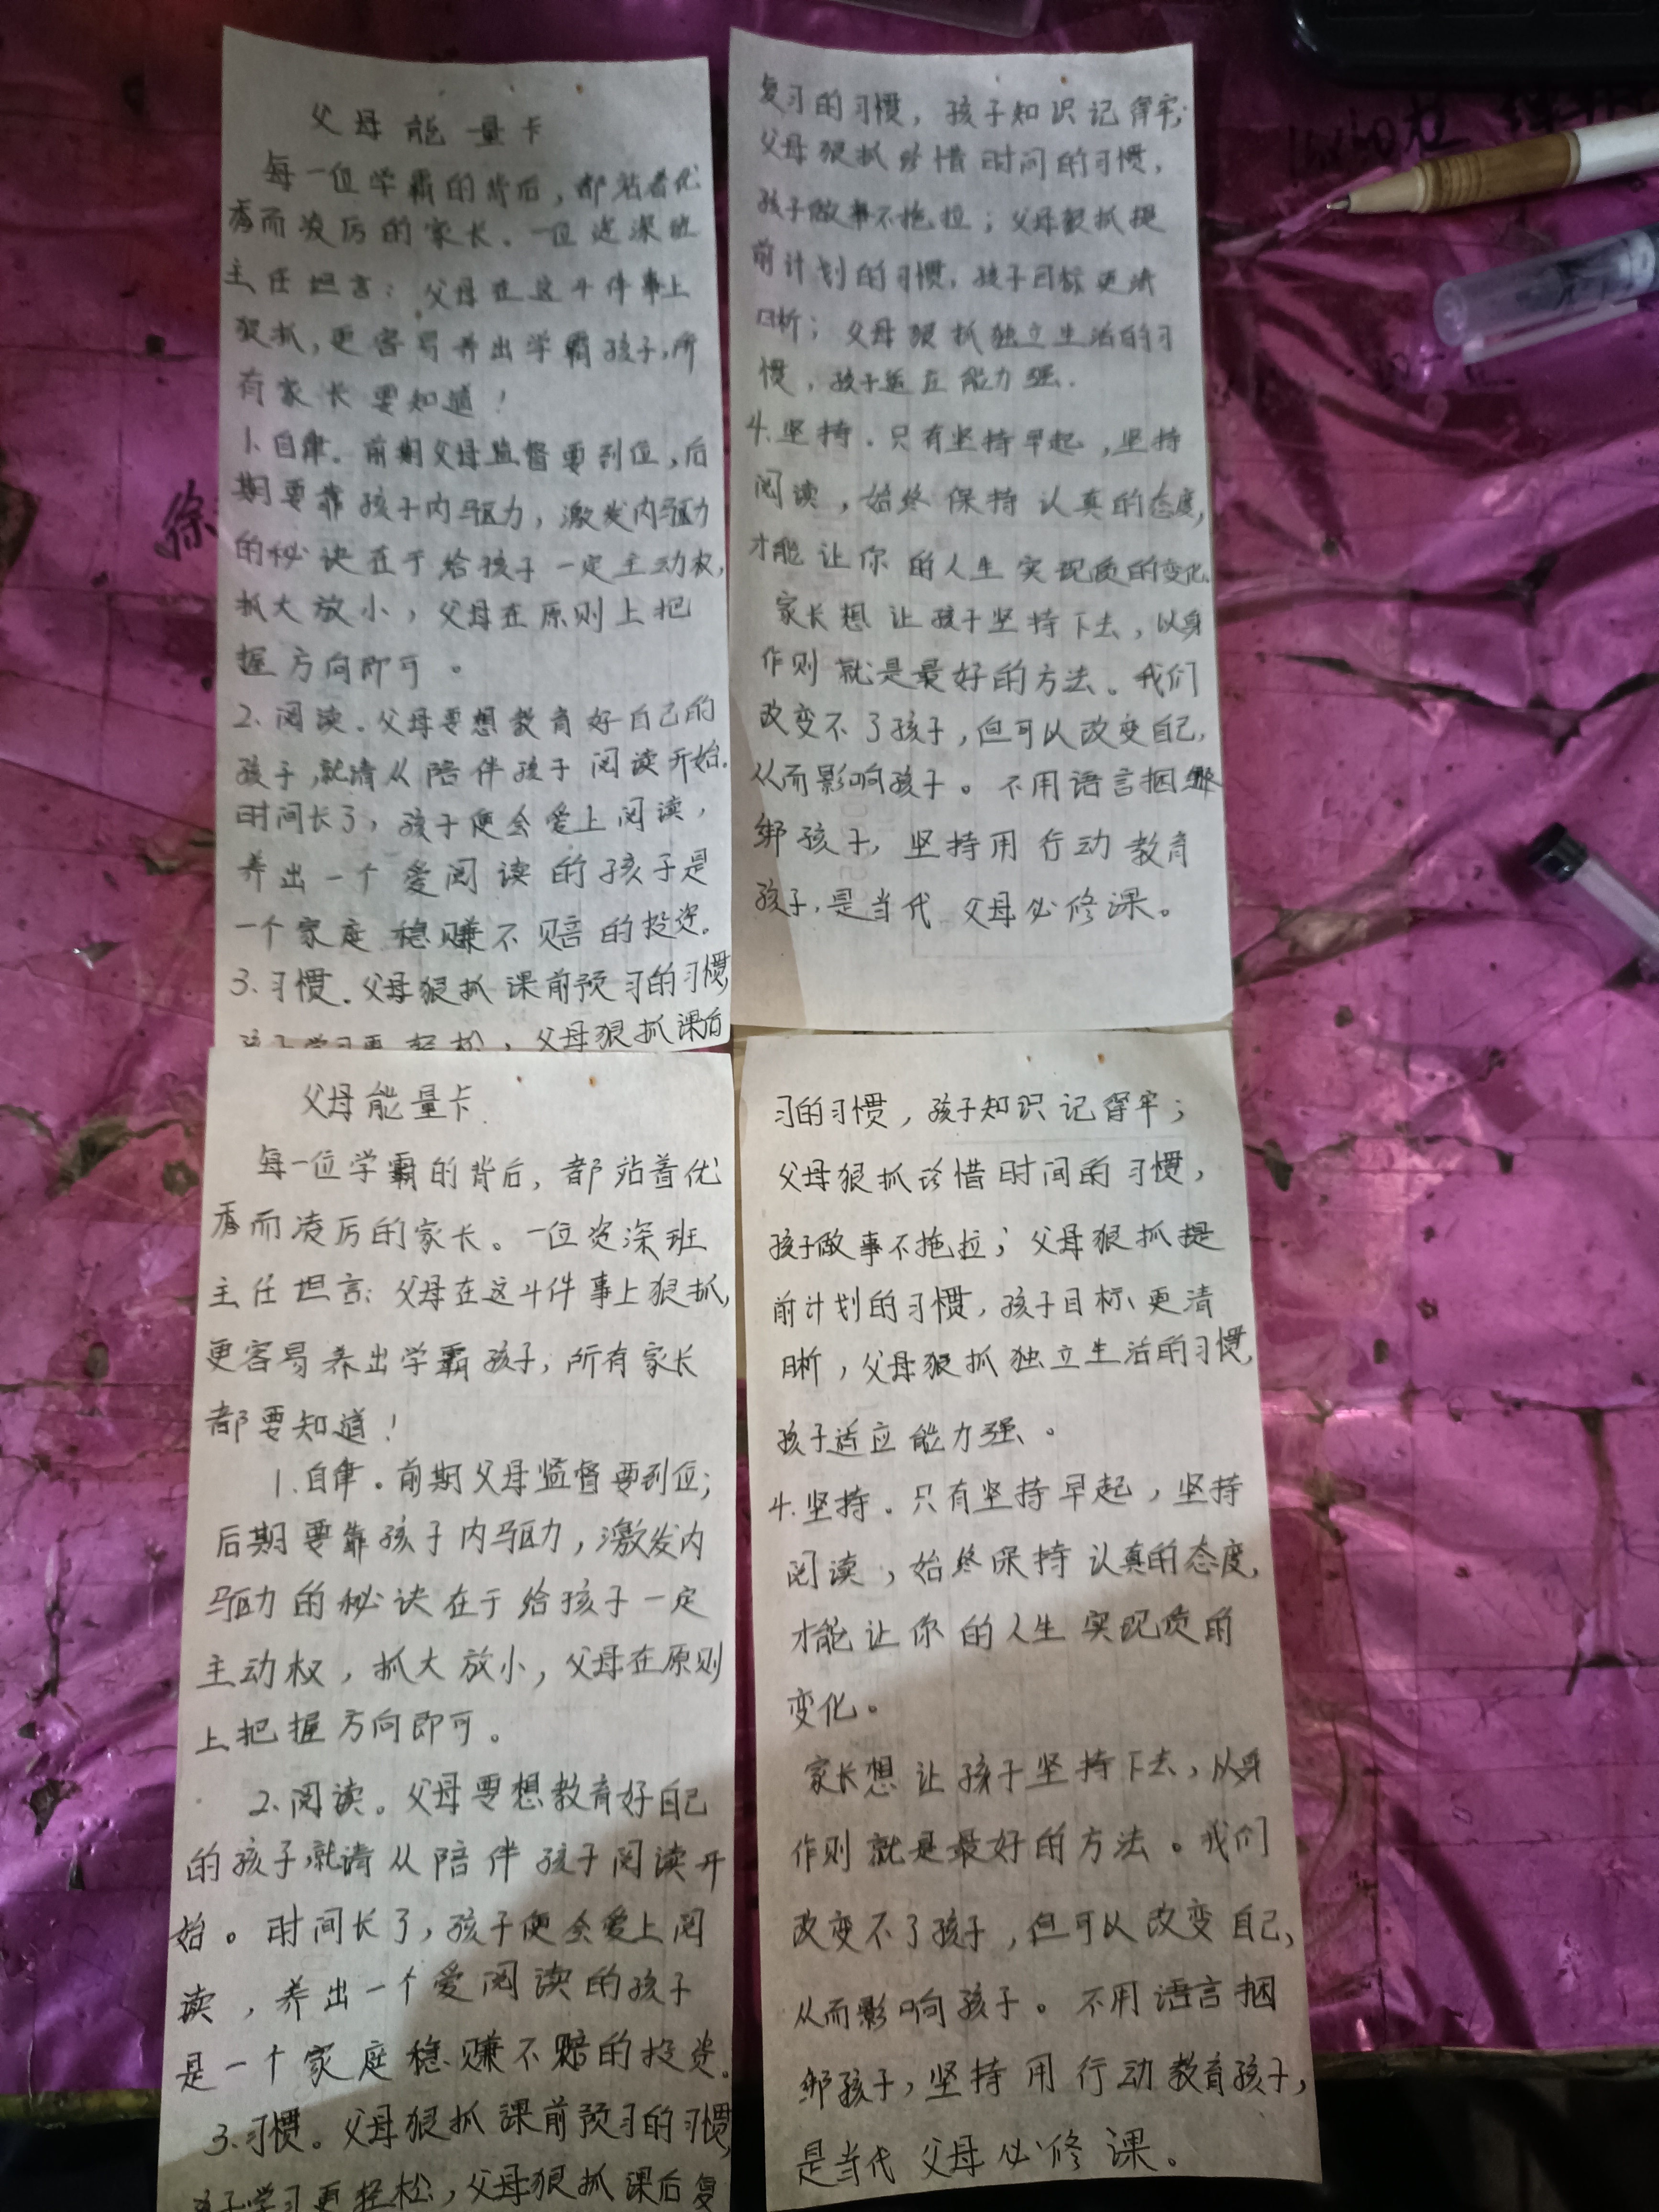 父母能量卡
每一位学霸的背后，都站着优
秀而凌厉的家长。一位资深班
主任坦言：父母在这4件事上
狠抓，更容易养出学霸孩子，所
有家长要知道！
1.自律。前期父母监督要到位，后
期要靠孩子内驱力，激发内驱力
的秘诀在于给孩子一定主动权，
抓大放小，父母在原则上把
握方向即可。
2.阅读。父母要想教育好自己的
孩子，就请从陪伴孩子阅读开始。
时间长了，孩子便会爱上阅读，
养出一个爱阅读的孩子是
一个家庭稳赚不赔的投资。
3.习惯。父母狠抓课前预习的习惯，
孩子学习更轻松，父母狠抓课后
复习的习惯，孩子知识记得牢；
父母狠抓珍惜时间的习惯，
孩子做事不拖拉；父母狠抓提
前计划的习惯，孩子目标更清
晰；父母狠抓独立生活的习
惯，孩子适应能力强。
4.坚持。只有坚持早起，坚持
阅读，始终保持认真的态度，
才能让你的人生实现质的变化
家长想让孩子坚持下去，以身
作则就是最好的方法。我们
改变不了孩子，但可以改变自己，
从而影响孩子。不用语言捆
绑孩子，坚持用行动教育
孩子，是当代父母必修课。
父母能量卡
每一位学霸的背后，都站着优
秀而凌厉的家长。一位资深班
主任坦言：父母在这4件事上狠抓，
更容易养出学霸孩子，所有家长
都要知道！
1.自律。前期父母监督要到位；
后期要靠孩子内驱力，激发内
驱力的秘诀在于给孩子一定
主动权，抓大放小，父母在原则
上把握方向即可。
2.阅读。父母要想教育好自己
的孩子，就请从陪伴孩子阅读开
始。时间长了，孩子便会爱上阅
读，养出一个爱阅读的孩子
是一个家庭稳赚不赔的投资。
3.习惯。父母狠抓课前预习的习惯，
孩子学习更轻松，父母狠抓课后复
习的习惯，孩子知识记得牢；
父母狠抓珍惜时间的习惯，
孩子做事不拖拉；父母狠抓提
前计划的习惯，孩子目标更清
晰，父母狠抓独立生活的习惯，
孩子适应能力强。
4.坚持。只有坚持早起，坚持
阅读，始终保持认真的态度，
才能让你的人生实现质的
变化。
家长想让孩子坚持下去，以身
作则就是最好的方法。我们
改变不了孩子，但可以改变自己，
从而影响孩子。不用语言捆
绑孩子，坚持用行动教育孩子，
是当代父母必修课。
徐